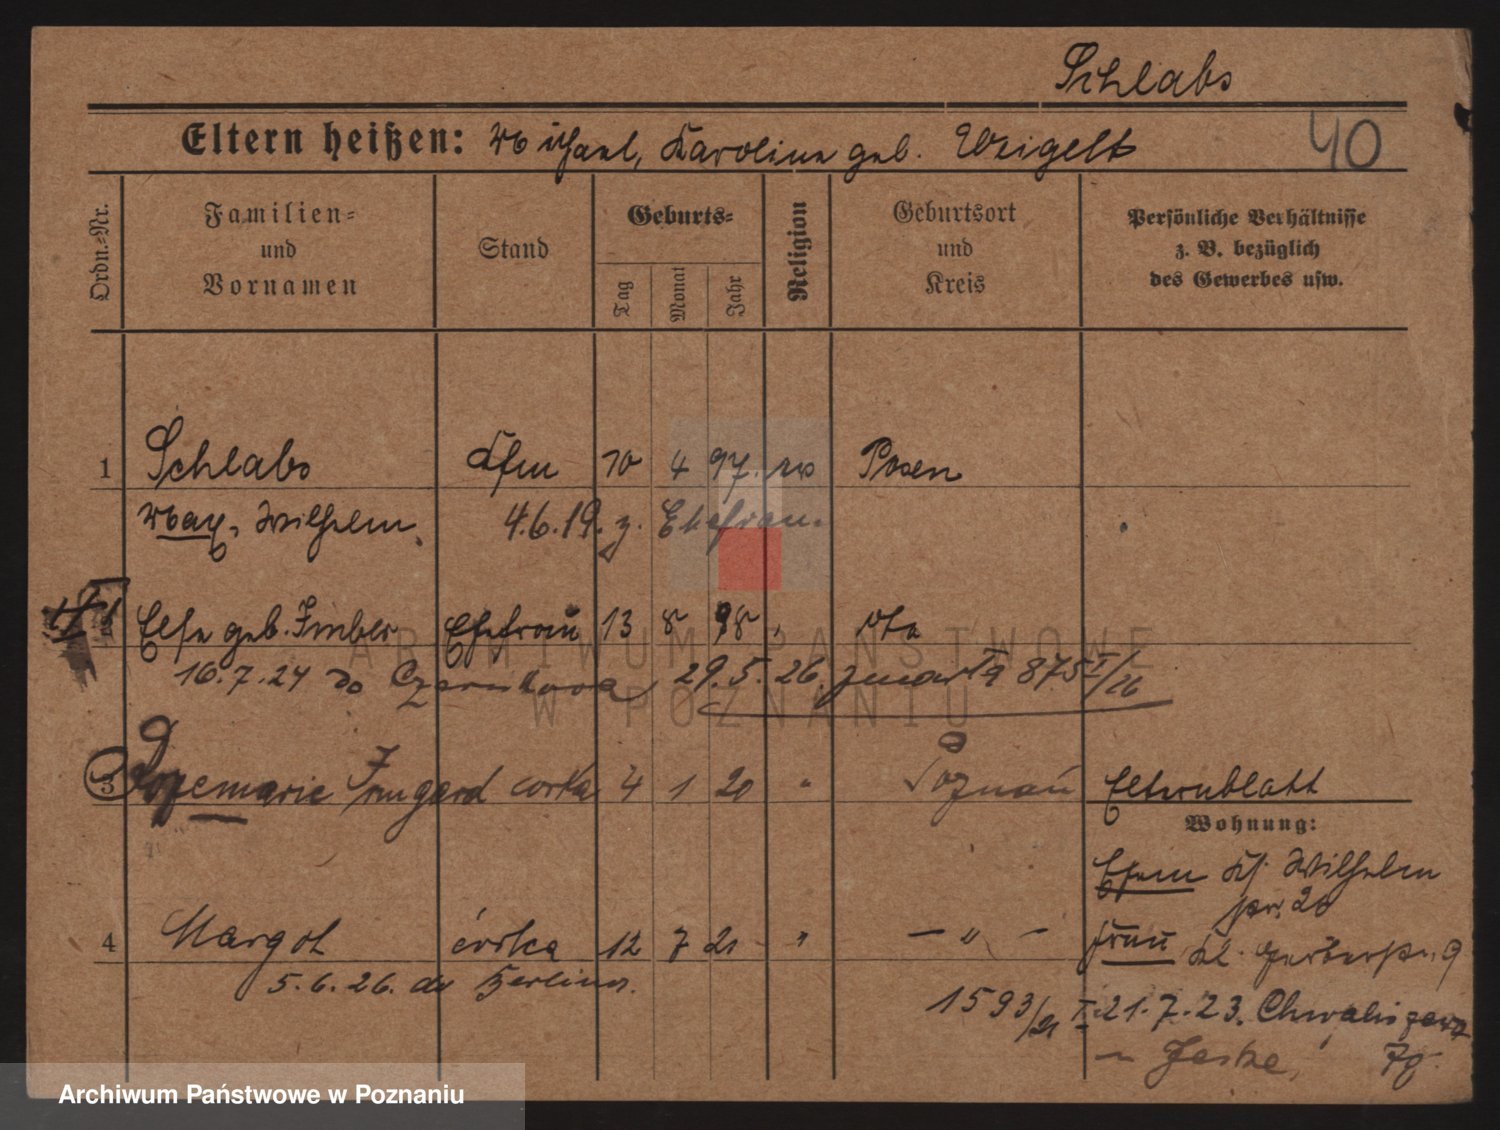 Schlabs
Eltern heißen: Michael, Karoline geb. Weigelt
40
Ordn.=Nr.
Familien=
und
Vornamen
Stand
Geburts=
Tag
Monat
Jahr
Religion
Geburtsort
und
Kreis
Persönliche Verhältnisse
z. B. bezüglich
des Gewerbes usw.
1 Schlabs Kfm 10 4 97. Posen
Max, Wilhelm. 4.6.19. z. Ehefrau.
Else geb. Imber Ehefrau 13 8 98
16.7.24 do Czarnkowa, 29.5.26. zmarła 875 I/26
3 Rozemarie Irmgard córka 4 1 20 " Poznań Elternblatt
Wohnung:
Ehem Kf. Wilhelm
str. 20
4 Margot córka 12 7 21 " — " —
Frau Kl. Gerberstr. 9
5.6.26. do Berlina.
1593/21 I 21.7.23. Chwaliszewo
Jeske, 79.
Archiwum Państwowe w Poznaniu
ARCHIWUM PAŃSTWOWE
W POZNANIU